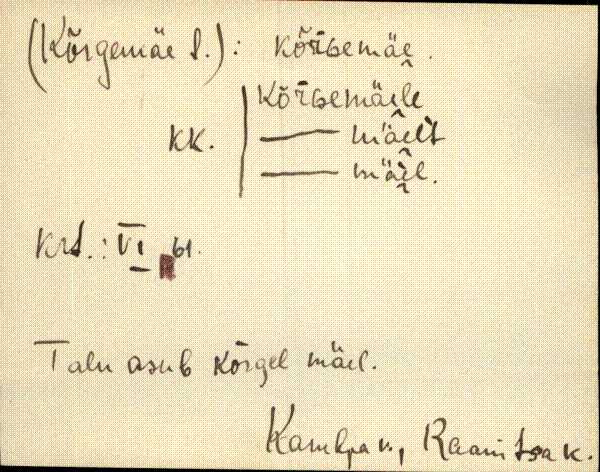 (Kõrgemäe t.): kõrɢemäe.
KK. | kõrɢemäele
—— mäelt
—— mäel.
Krt.: VI 61.
Talu asub kõrgel mäel.
Kambja v., Raanitsa k.